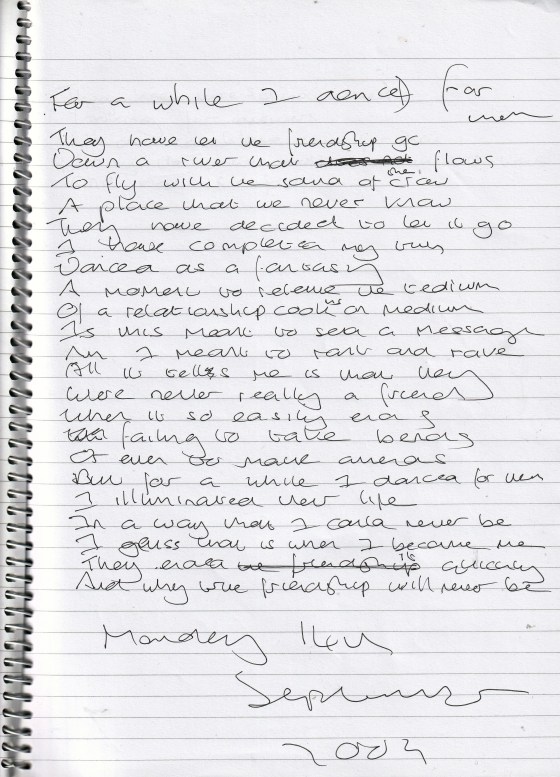 For a while I danced for
them
They have let the friendship go
Down a river that does not flows
To fly with the sand of the crow
A place that we never know
They have decided to let it go
I have completed my turn
Danced as a fantasy
A moment to relieve the tedium
Of a relationship cooking on medium
Is this meant to send a message
Am I meant to rant and rave
All it tells me is that they
Were never really a friend
When it so easily ends
failing to take bends
Or even to make amends
But for a while I danced for them
I illuminated their life
In a way that I could never be
I guess that is when I became me
They ended the friendship its
And why true friendship will never be
Monday 15th
September
2003